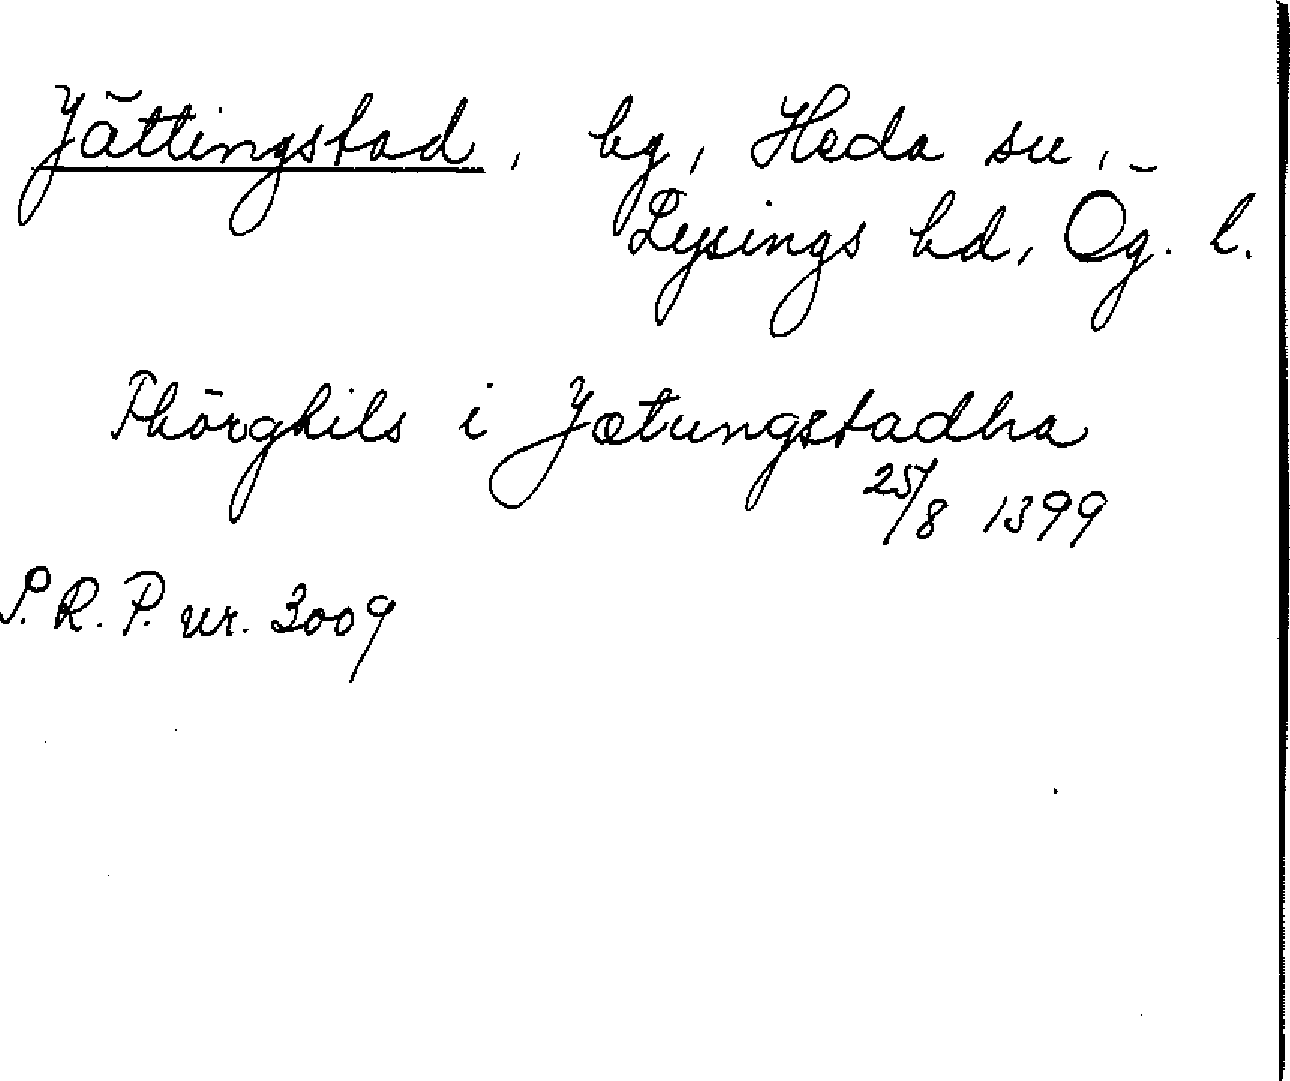 Jättingstad, by, Heda sn,
Lysings hd, Ög. l.
Thörghils i Jætungstadha
25/8 1399
S.R.P. nr. 3009